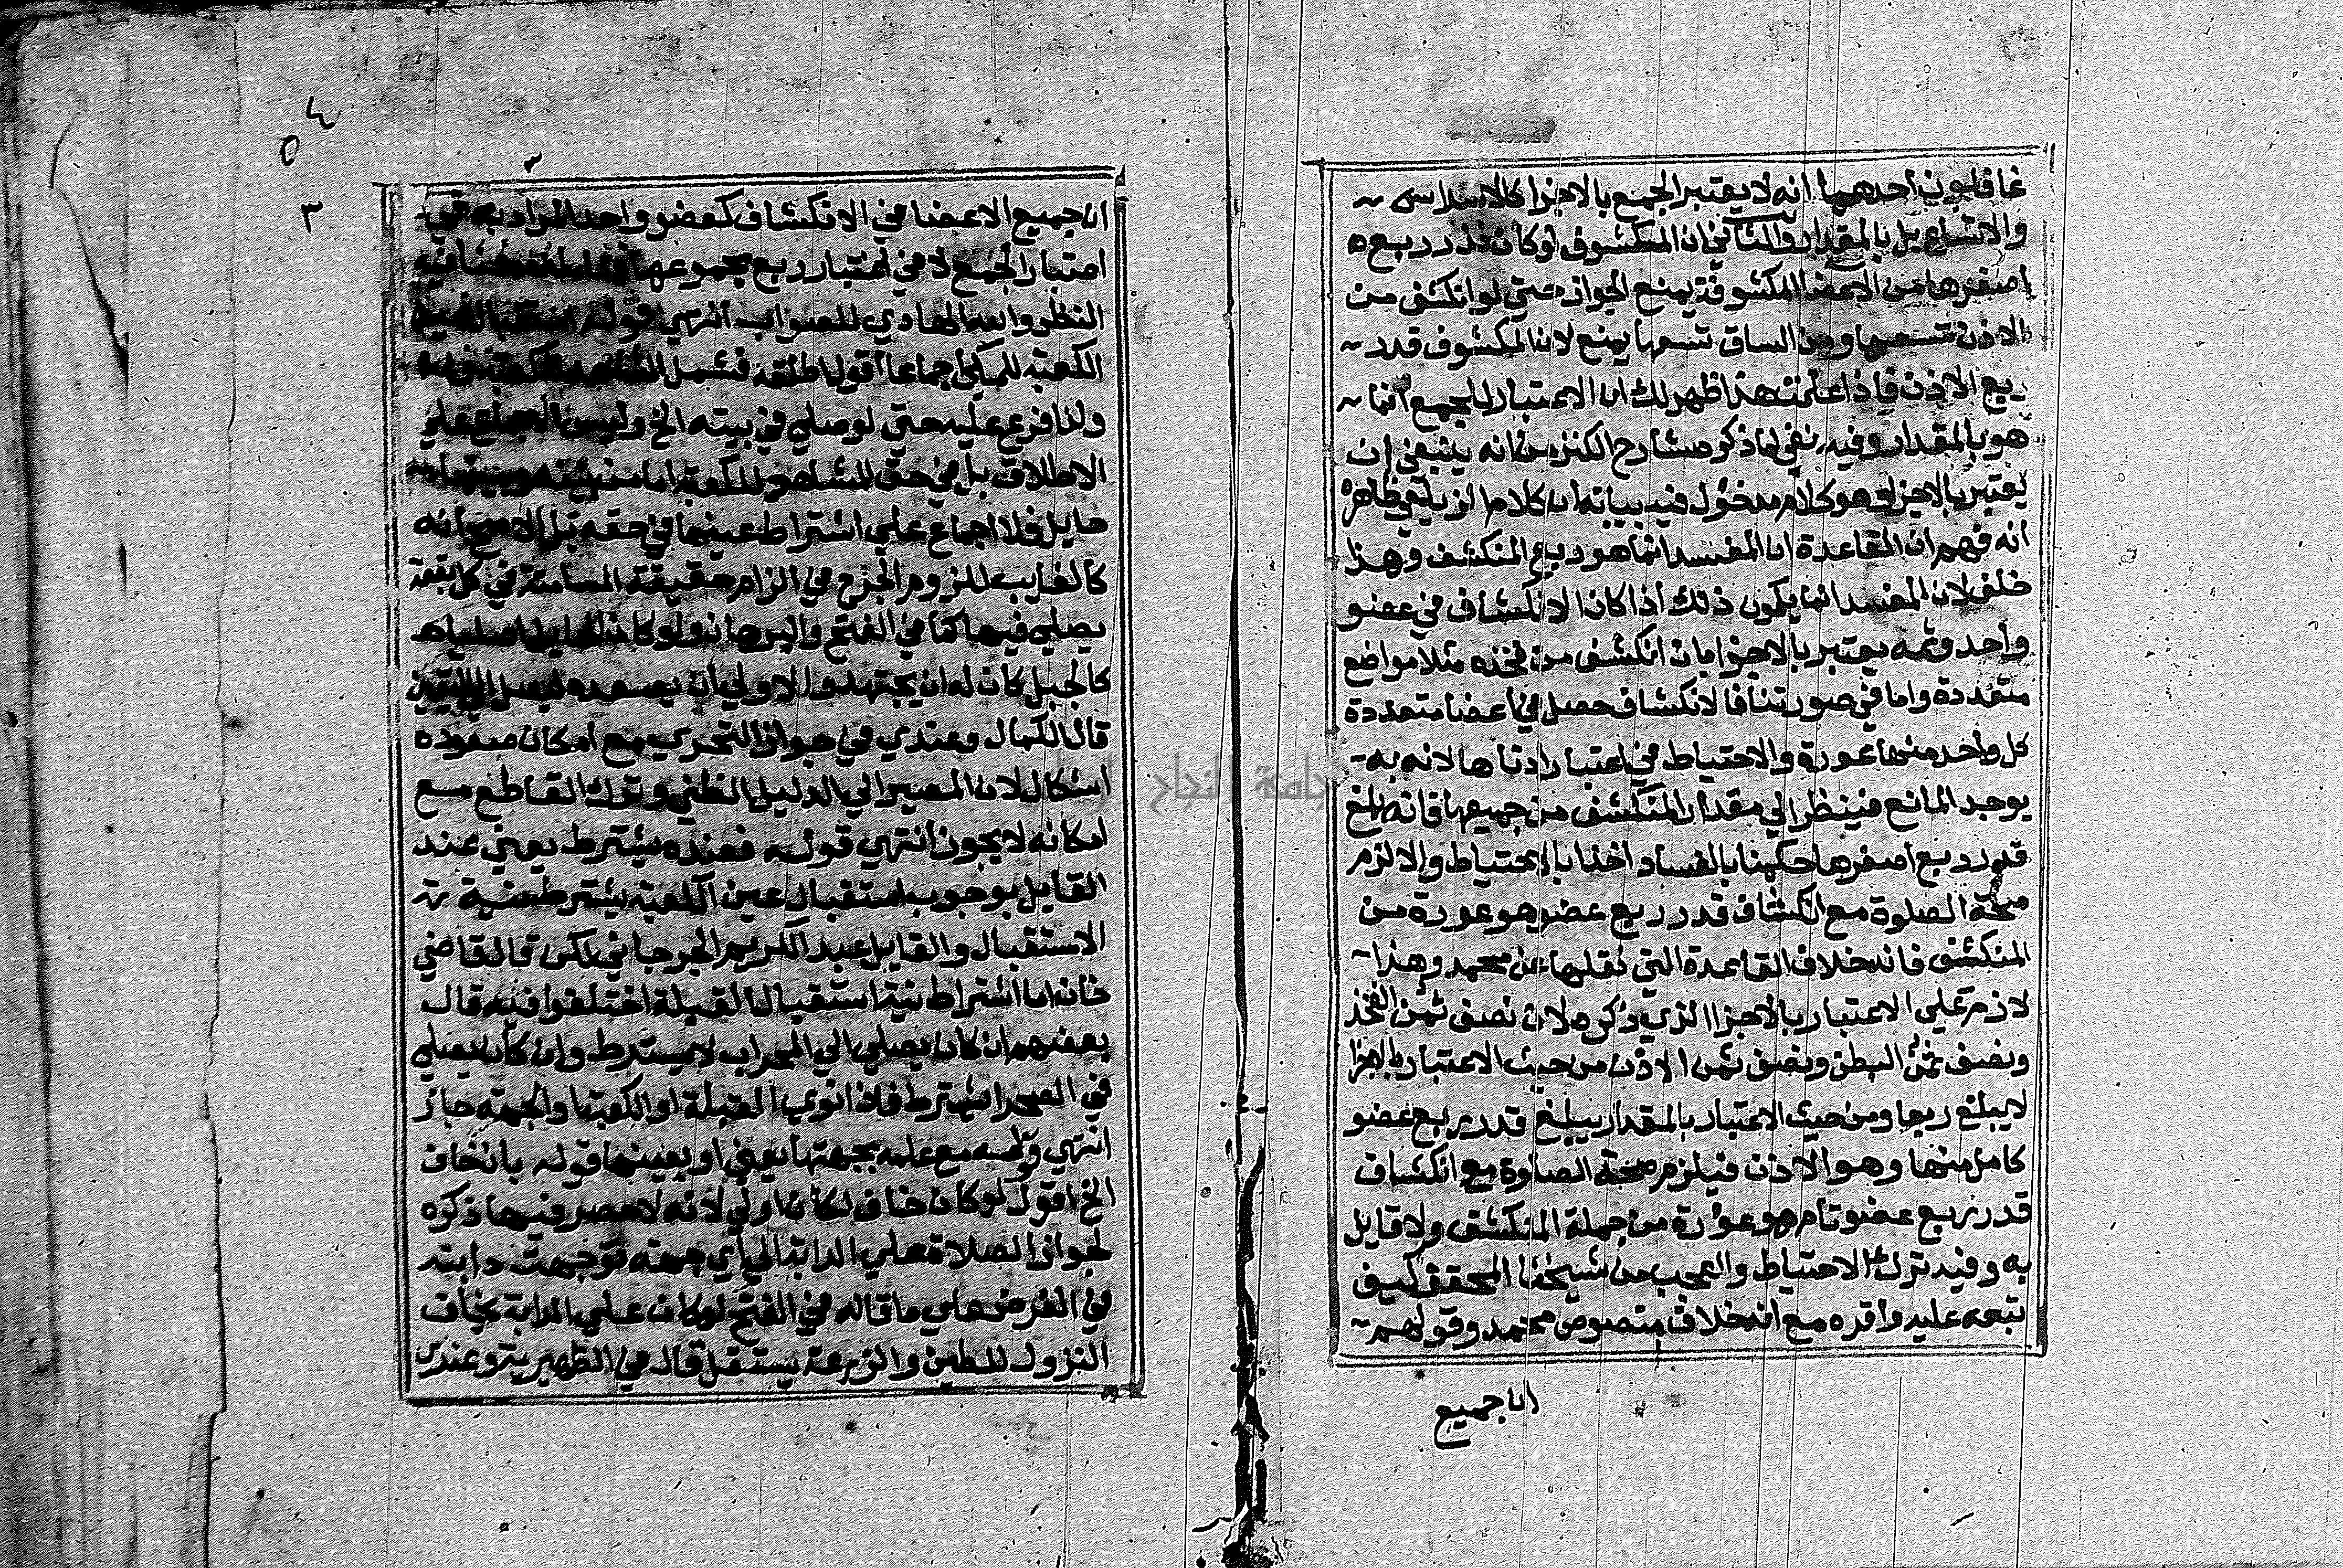 غافلون احدهما انه لا يعتبر الجمع بالاجزا كالاسداس
والاتساع بل بالمقدار والثاني ان المكشوف لو كان قدر ربع
اصغرها من الاعضا المكشوفة يمنع الجواز حتي لو انكشف من
الاذن تسعها ومن الساق تسعها يمنع لان المكشوف قدر
ربع الاذن فاذا علمت هذا ظهر لك ان الاعتبار للجمع انما
هو بالمقدار وفيه نفي لما ذكره شارح الكنز من انه ينبغي ان
يعتبر بالاجزا وهو كلام مدخول فيه بيانه ان كلام الزيلعي ظاهره
انه فهم ان القاعدة ان المفسد انما هو ربع المنكشف وهذا
خلف لان المفسد انما يكون ذلك اذا كان الانكشاف في عضو
واحد وثمه يعتبر بالاجزا بان انكشف من فخذه مثلا مواضع
متعددة واما في صورتنا فالانكشاف حصل في اعضا متعددة
كل واحد منها عورة والاحتياط في اعتبار ادناها لانه به
يوجد المانع فينظر الي مقدار المنكشف من جميعها فانه بلغ
قدر ربع اصغرها حكمنا بالفساد اخذا بالاحتياط والا لزم
صحة الصلوة مع انكشاف قدر ربع عضو هو عورة من
المنكشف فانه خلاف القاعدة التي نقلها عن محمد وهذا
لازم علي الاعتبار بالاجزا الذي ذكره لان نصف ثمن الفخذ
ونصف ثمن البطن ونصف ثمن الاذن من حيث الاعتبار بالاجزا
لا يبلغ ربعا ومن حيث الاعتبار بالمقدار يبلغ قدر ربع عضو
كامل منها وهو الاذن فيلزم صحة الصلوة مع انكشاف
قدر ربع عضو تام هو عورة من جملة المنكشف ولا قايل
به وفيه ترك الاحتياط والعجب من شيخنا المحقق كيف
تبعه عليه واقره مع انه خلاف منصوص محمد وقولهم
ان جميع
٤
٥
٣
ان جميع الاعضا في الانكشاف كعضو واحد المراد به في
اعتبار الجمع لا في اعتبار ربع مجموعها
النظر والله الهادي للصواب انتهي قوله استقبال عين
الكعبة للمكي اجماعا اقول اطلقه فشمل
ولذا فرع عليه حتي لو صلي في بيته الخ وليس الاجماع علي
الاطلاق بل في حق المشاهد للكعبة اما من بينه وبينها
حايل فلا اجماع علي اشتراط عينها في حقه بل الاصح انه
كالغايب للزوم الحرج في الزام حقيقة المسامتة في كل بقعة
يصلي فيها كما في الفتح والبرهان ولو كان الحايل اصليا
كالجبل كان له ان يجتهد والاولي ان يصعده ليصل الي اليقين
قال الكمال وعندي في جواز التحري مع امكان صعوده
اشكال لان المصير الي الدليل الظني وترك القاطع مع
امكانه لا يجوز انتهي قوله فعنده يشترط يعني عند
القايل بوجوب استقبال عين الكعبة يشترط نية
الاستقبال والقايل عبد الكريم الجرجاني لكن قال قاضي
خان اما اشتراط نية استقبال القبلة اختلفوا فيه قال
بعضهم ان كان يصلي الي المحراب لا يشترط وان كان يصلي
في الصحرا يشترط فاذا نوي القبلة او الكعبة او الجهة جاز
انتهي قوله مع علمه بجهتها يعني او بعينها قوله بان خاف
الخ اقول لو كان خاف لكان اولي لانه لا حصر فيما ذكره
لجواز الصلاة علي الدابة الي اي جهة توجهت دابته
في الفرض علي ما قاله في الفتح لو كان علي الدابة يخاف
النزول للطين والردغة يستقبل قال في الظهيرية وعندي